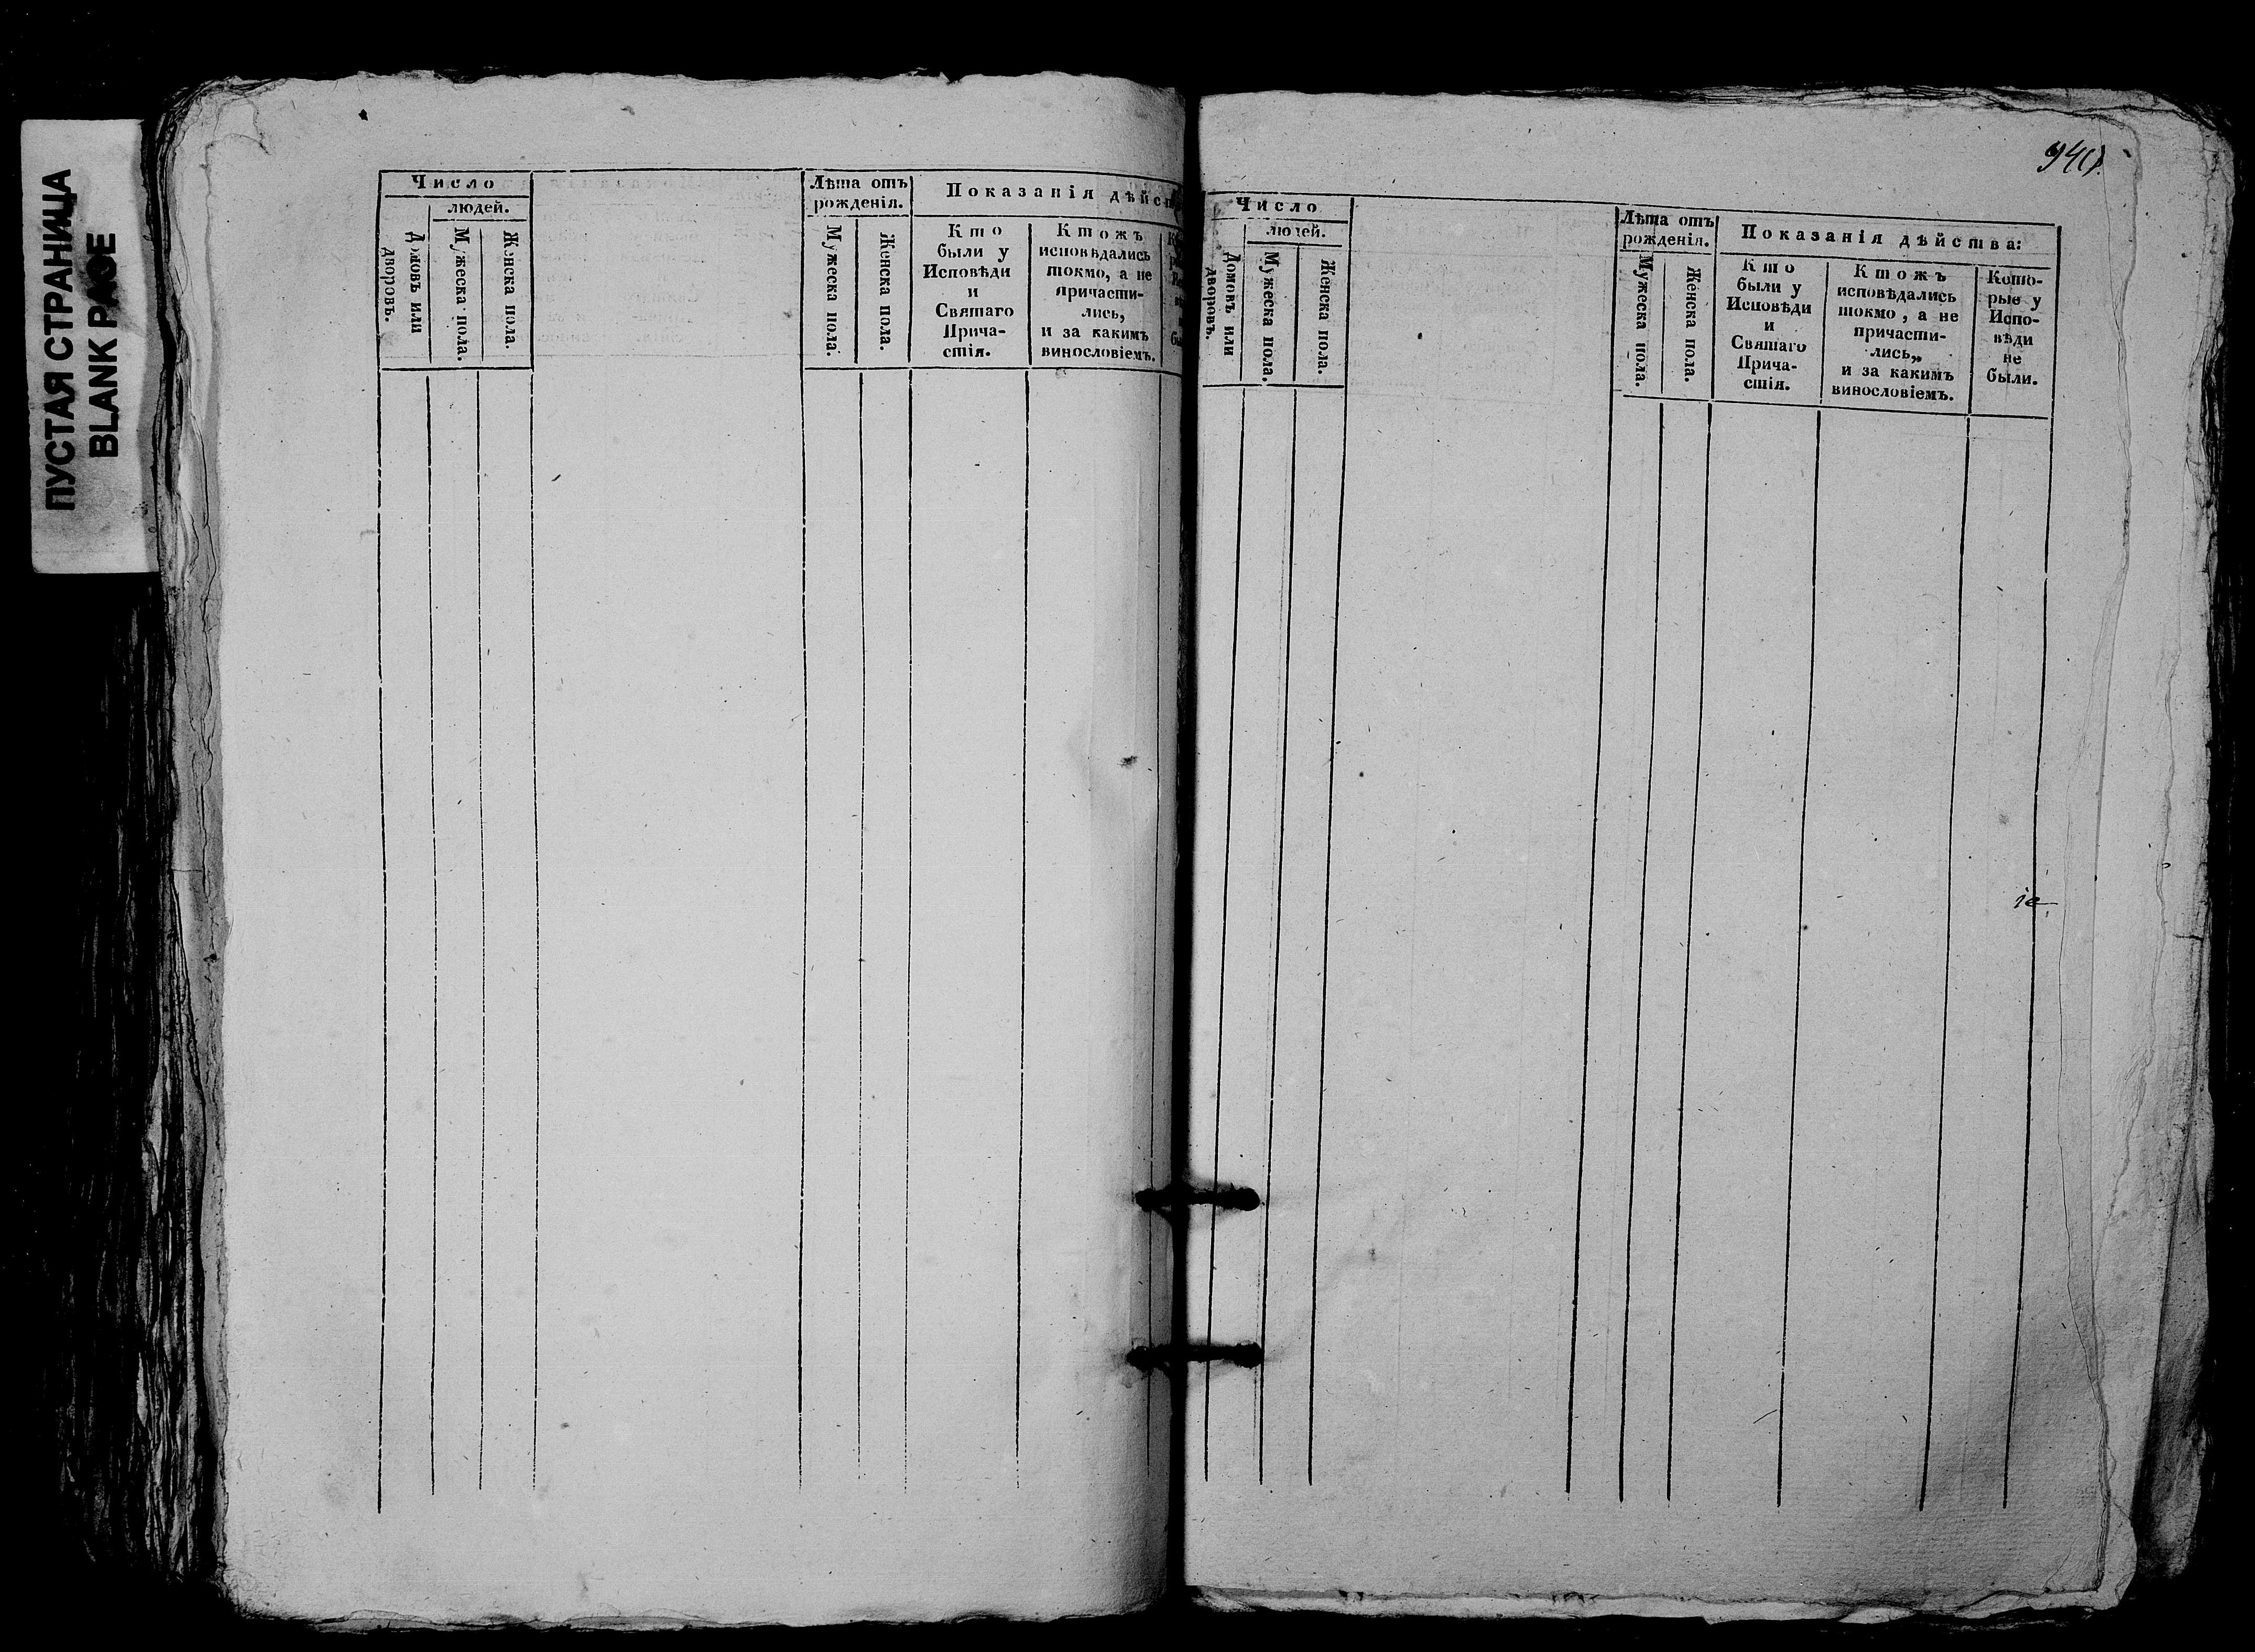 ПУСТАЯ СТРАНИЦА
BLANK PAGE
Число
людей.
Домовъ или
дворовъ.
Мужеска пола.
Женска пола.
Лѣта отъ
рожденія.
Мужеска пола.
Женска пола.
Показанія дѣйст
Кто
были у
Исповѣди
и
Святаго
Прича-
стія.
Ктожъ
исповѣдались
токмо, а не
причасти-
лись,
и за какимъ
винословіемъ.
Число
людей.
Домовъ или
дворовъ.
Мужеска пола.
Женска пола.
Лѣта отъ
рожденія.
Мужеска пола.
Женска пола.
Показанія дѣйства:
Кто
были у
Исповѣди
и
Святаго
Прича-
стія.
Ктожъ
исповѣдались
токмо, а не
причасти-
лись,
и за какимъ
винословіемъ.
Кото-
рые у
Испо-
вѣди
не
были.